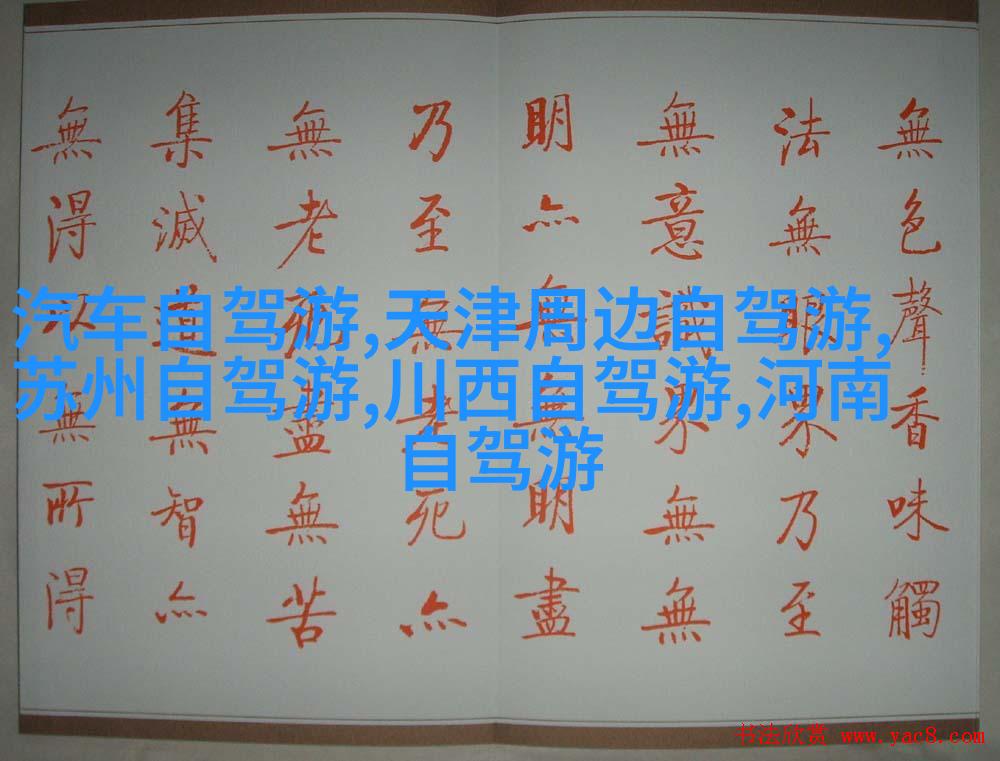 無色聲香味觸
法無眼界乃至
無意識界無無
明亦無無明盡
乃至無老死亦
無老死盡無苦
集滅道無智亦
無得以無所得
汽车自驾游,天津周边自驾游,
苏州自驾游,川西自驾游,河南
自驾游
书法欣赏 www.yac8.com